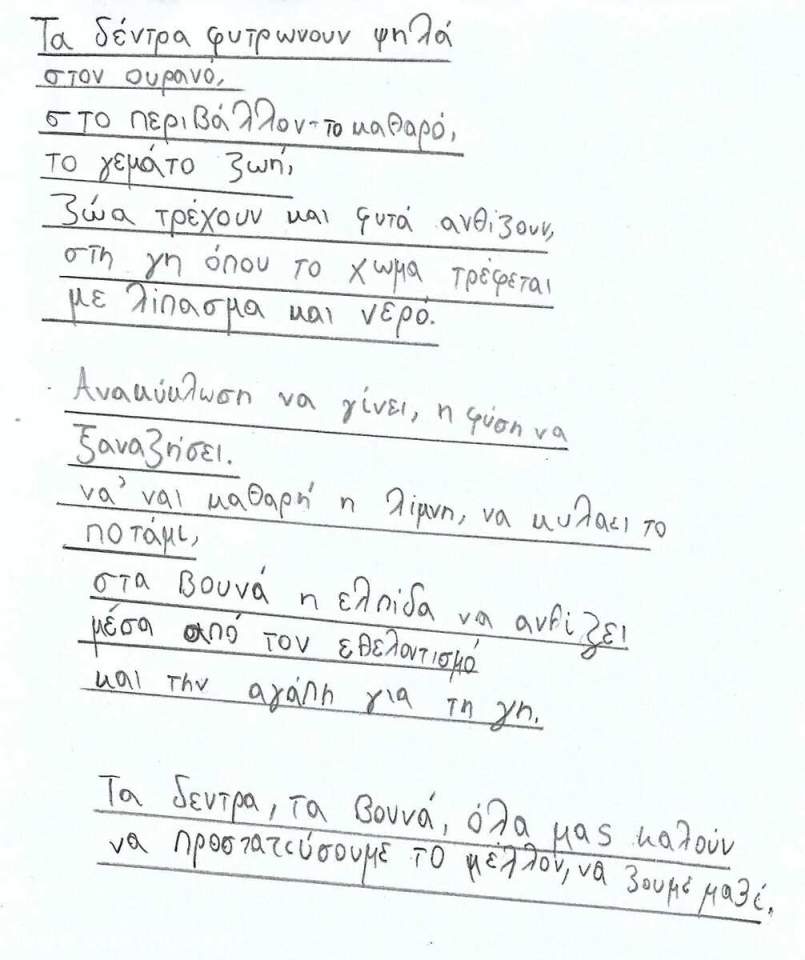 Τα δέντρα φυτρώνουν ψηλά
στον ουρανό,
στο περιβάλλον-το καθαρό,
το γεμάτο ζωή,
ζώα τρέχουν και φυτά ανθίζουν,
στη γη όπου το χωμα τρέφεται
με λίπασμα και νερό.
Ανακύκλωση να γίνει, η φύση να
ξαναζήσει.
να' ναι καθαρή η λίμνη, να κυλαει το
ποτάμι,
στα βουνά η ελπίδα να ανθίζει
μέσα από τον εθελοντισμό
και την αγάπη για τη γη.
Τα δεντρα, τα βουνά, όλα μας καλούν
να προστατεύσουμε το μέλλον, να ζουμέ μαζί.